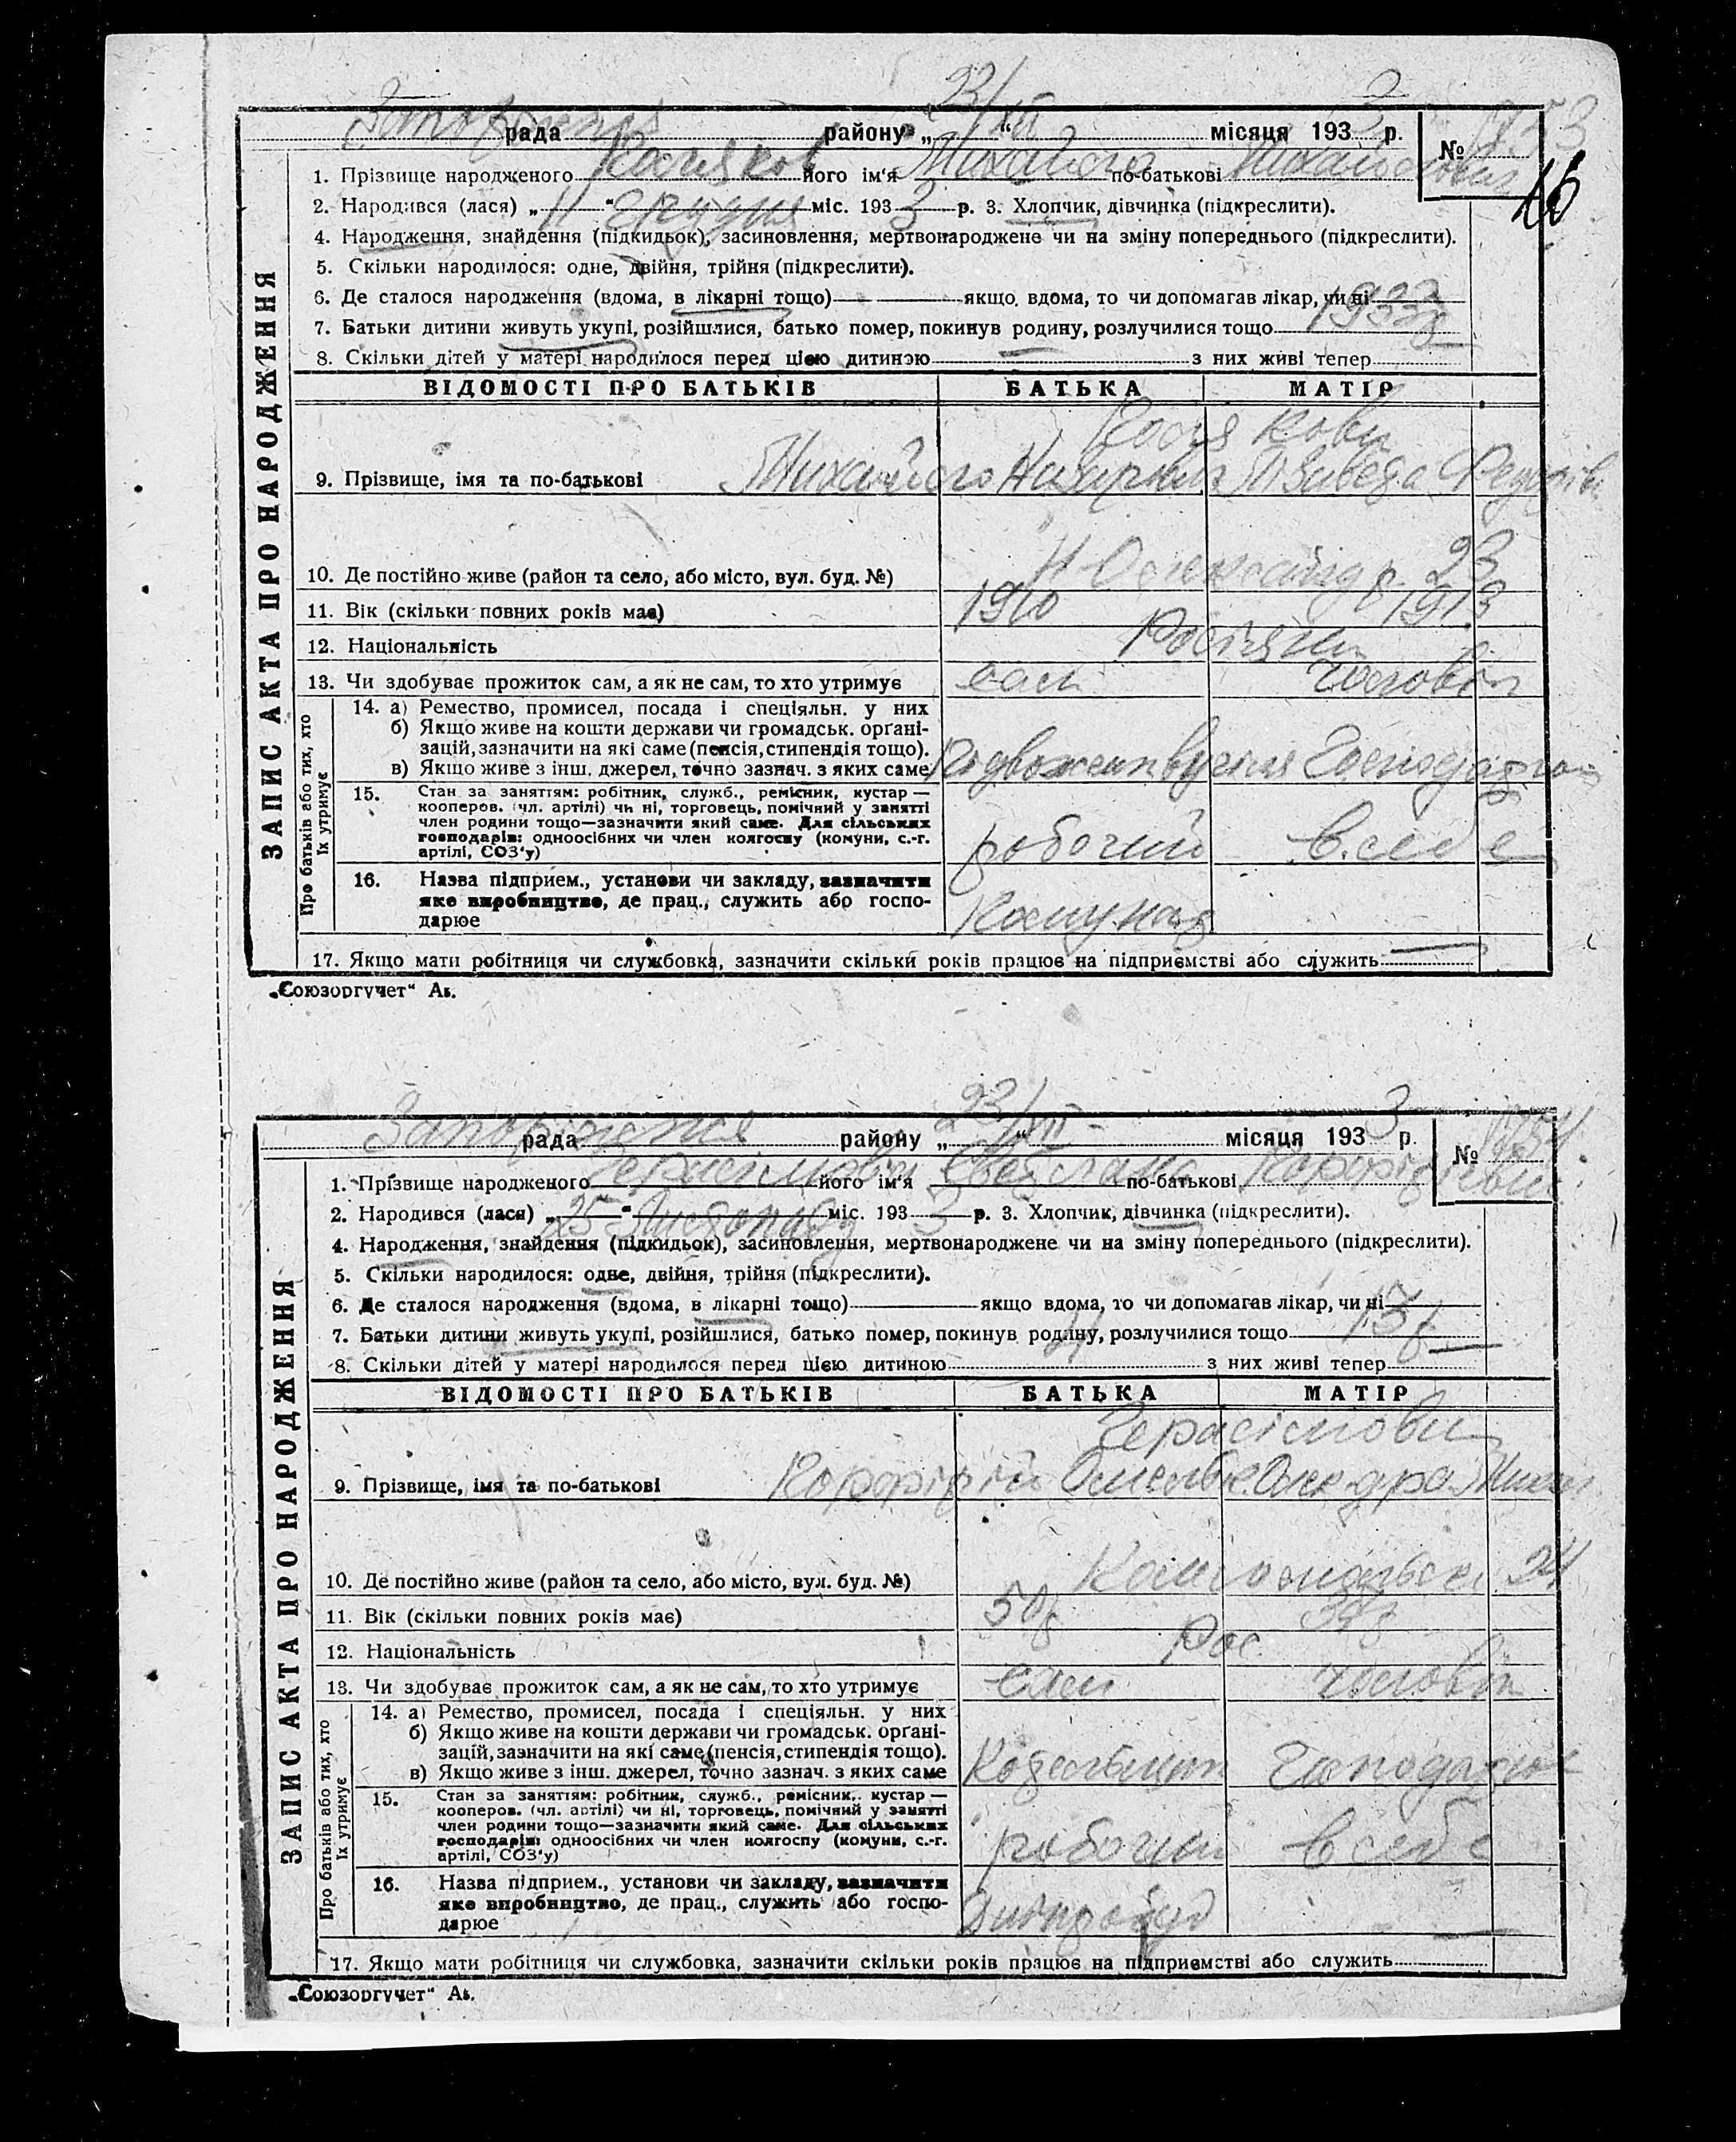 рада району „23/XII“ місяця 1933 р. №
16
1. Прізвище народженого його ім'я Михайло по-батькові
2. Народився (лася) „11“ грудня міс. 1933 р. 3. Хлопчик, дівчинка (підкреслити).
4. Народження, знайдення (підкидьок), засиновлення, мертвонароджене чи на зміну попереднього (підкреслити).
5. Скільки народилося: одне, двійня, трійня (підкреслити).
6. Де сталося народження (вдома, в лікарні тощо) — якщо вдома, то чи допомагав лікар, чи ні
7. Батьки дитини живуть укупі, розійшлися, батько помер, покинув родину, розлучилися тощо 1933
8. Скільки дітей у матері народилося перед цією дитиною — з них живі тепер
ВІДОМОСТІ ПРО БАТЬКІВ БАТЬКА МАТІР
9. Прізвище, імя та по-батькові Михайло
10. Де постійно живе (район та село, або місто, вул. буд. №) 23
11. Вік (скільки повних років має) 1910 1913
12. Національність Росіяни
13. Чи здобуває прожиток сам, а як не сам, то хто утримує сам чоловік
14. а) Ремество, промисел, посада і спеціяльн. у них
б) Якщо живе на кошти держави чи громадськ. орґані-
зацій, зазначити на які саме (пенсія, стипендія тощо).
в) Якщо живе з інш. джерел, точно зазнач. з яких саме
15. Стан за заняттям: робітник, служб., ремісник, кустар —
кооперов. (чл. артілі) чи ні, торговець, помічний у занятті
член родини тощо—зазначити який саме. Для сільських
господарів: одноосібних чи член колгоспу (комуни, с.-г.
артілі, СОЗ'у) робочий в себе
16. Назва підприєм., установи чи закладу, зазначити
яке виробництво, де прац., служить або госпо-
дарює
17. Якщо мати робітниця чи службовка, зазначити скільки років працює на підприємстві або служить —
ЗАПИС АКТА ПРО НАРОДЖЕННЯ
Про батьків або тих, хто
їх утримує
„Союзоргучет“
рада району „23/XII“ місяця 1933 р. №
1. Прізвище народженого його ім'я Светлана по-батькові
2. Народився (лася) „25“ Листопаду міс. 1933 р. 3. Хлопчик, дівчинка (підкреслити).
4. Народження, знайдення (підкидьок), засиновлення, мертвонароджене чи на зміну попереднього (підкреслити).
5. Скільки народилося: одне, двійня, трійня (підкреслити).
6. Де сталося народження (вдома, в лікарні тощо) якщо вдома, то чи допомагав лікар, чи ні
7. Батьки дитини живуть укупі, розійшлися, батько помер, покинув родину, розлучилися тощо
8. Скільки дітей у матері народилося перед цією дитиною з них живі тепер
ВІДОМОСТІ ПРО БАТЬКІВ БАТЬКА МАТІР
Герасімови
9. Прізвище, імя та по-батькові
10. Де постійно живе (район та село, або місто, вул. буд. №)
11. Вік (скільки повних років має)
12. Національність Рос.
13. Чи здобуває прожиток сам, а як не сам, то хто утримує сам чоловік
14. а) Ремество, промисел, посада і спеціяльн. у них
б) Якщо живе на кошти держави чи громадськ. орґані-
зацій, зазначити на які саме (пенсія, стипендія тощо).
в) Якщо живе з інш. джерел, точно зазнач. з яких саме
15. Стан за заняттям: робітник, служб., ремісник, кустар —
кооперов. (чл. артілі) чи ні, торговець, помічний у занятті
член родини тощо—зазначити який саме. Для сільських
господарів: одноосібних чи член колгоспу (комуни, с.-г.
артілі, СОЗ'у) робочий в себе
16. Назва підприєм., установи чи закладу, зазначити
яке виробництво, де прац., служить або госпо-
дарює
17. Якщо мати робітниця чи службовка, зазначити скільки років працює на підприємстві або служить
ЗАПИС АКТА ПРО НАРОДЖЕННЯ
Про батьків або тих, хто
їх утримує
„Союзоргучет“